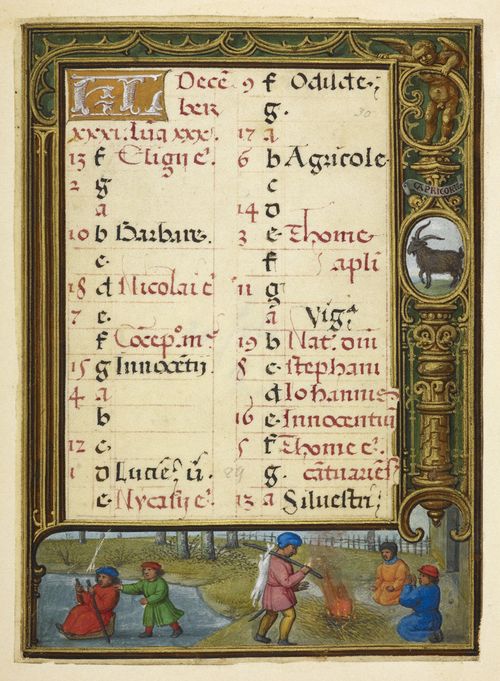 KL Decē
ber
xxxi. Luā xxx.
13 f Eligii e.
2 g
a
10 b Barbare.
c
18 d Nicolai e
7 e
f Cōcep. m
15 g Innocētii
4 a
b
12 c
1 d Lucie v.
e Nycasii e.
9 f Odilcie.
g. 30
17 a
6 b Agricole
c
14 d
3 e Thome
f apli
11 g
a Vig
19 b Nat. dni
8 c Stephani
d Iohannis
16 e Innocentiū
5 f Thome e.
g. cātuariēs
13 a Silvestri
89
CAPRICORN